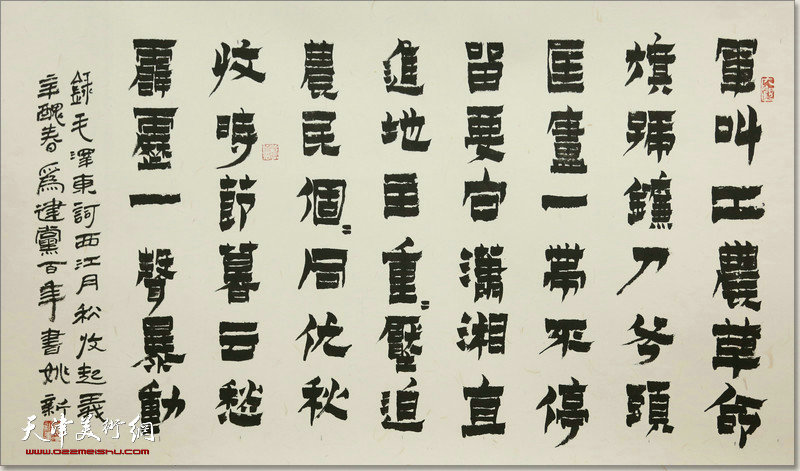 軍叫工農革命
旗號鐮刀斧頭
匡廬一帶不停
留要向瀟湘直
進地主重〻壓迫
農民個〻同仇秋
收時節暮云愁
霹靂一聲暴動
錄毛澤東詞西江月秋收起義
辛醜春爲建黨百年書姚新
天津美術網
www.022meishu.com